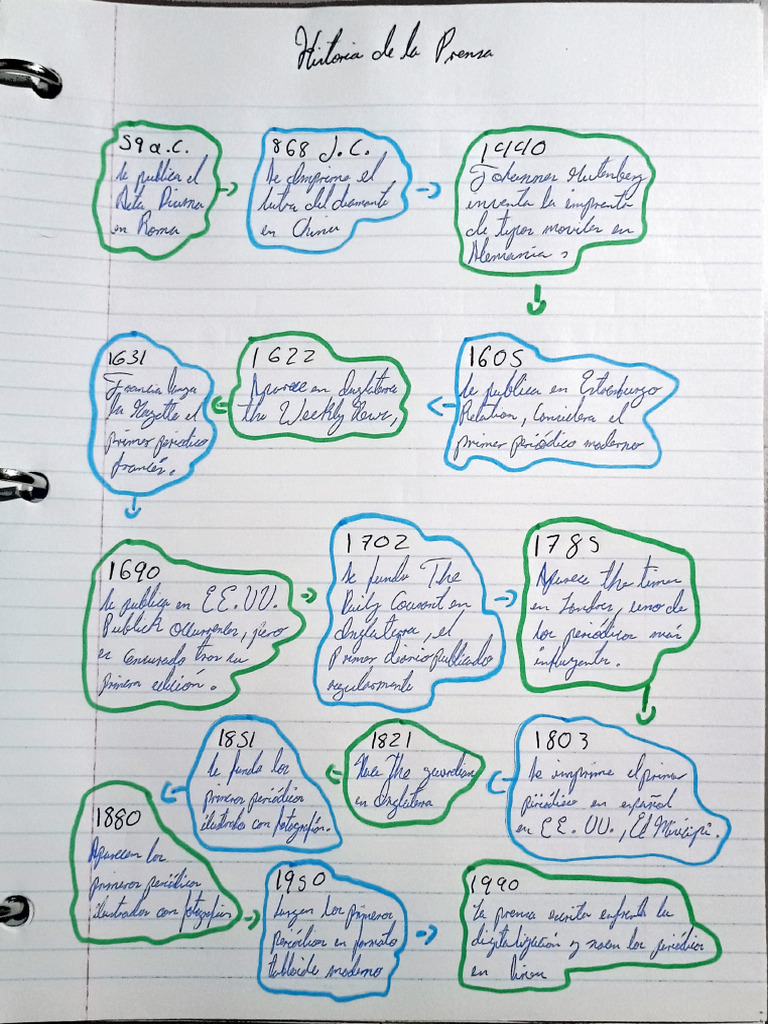 Historia de la Prensa
59 a.C.
Se publica el
Acta Diurna
en Roma
868 d.C.
Se Imprime el
sutra del diamante
en China
1440
Johannes Gutenberg
inventa la imprenta
de tipos moviles en
Alemania
1605
Se publica en Estrasburgo
Relation, Considera el
primer periódico moderno
1622
Aparece en Inglaterra
the Weekly News,
1631
Francia lanza
la Gazette el
primer periodico
francés.
1690
Se publica en EE.UU.
Publick Ocurrences, pero
es censurado tras su
primera edición.
1702
Se funda The
Daily Courant en
Inglaterra, el
Primer diario publicado
regularmente
1785
Aparece the times
en Londres, uno de
los periódicos más
influyentes.
1803
Se imprime el primer
periódico en español
en EE.UU., El Misisipí.
1821
Nace The guardian
en Inglaterra
1851
Se funda los
primeros periódicos
ilustrados con fotografías.
1880
Aparecen los
primeros periódicos
ilustrados con fotografías
1950
Surgen los primeros
periódicos en formato
tabloide moderno
1990
La prensa escrita enfrenta la
digitalización y nacen los periódicos
en línea